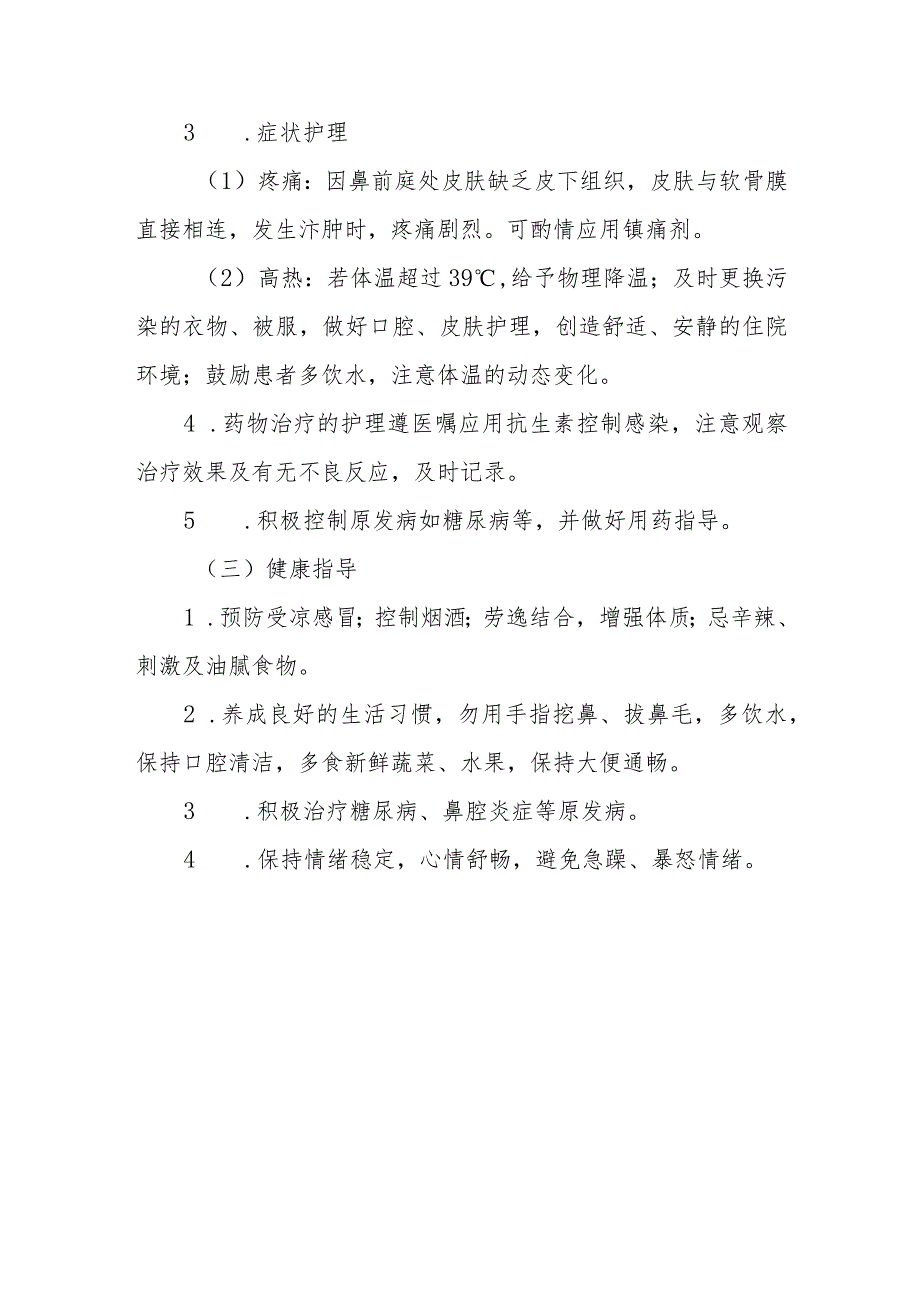 3 .症状护理
（1）疼痛：因鼻前庭处皮肤缺乏皮下组织，皮肤与软骨膜
直接相连，发生汴肿时，疼痛剧烈。可酌情应用镇痛剂。
（2）高热：若体温超过39℃,给予物理降温；及时更换污
染的衣物、被服，做好口腔、皮肤护理，创造舒适、安静的住院
环境；鼓励患者多饮水，注意体温的动态变化。
4 .药物治疗的护理遵医嘱应用抗生素控制感染，注意观察
治疗效果及有无不良反应，及时记录。
5 .积极控制原发病如糖尿病等，并做好用药指导。
（三）健康指导
1 .预防受凉感冒；控制烟酒；劳逸结合，增强体质；忌辛辣、
刺激及油腻食物。
2 .养成良好的生活习惯，勿用手指挖鼻、拔鼻毛，多饮水，
保持口腔清洁，多食新鲜蔬菜、水果，保持大便通畅。
3 .积极治疗糖尿病、鼻腔炎症等原发病。
4 .保持情绪稳定，心情舒畅，避免急躁、暴怒情绪。